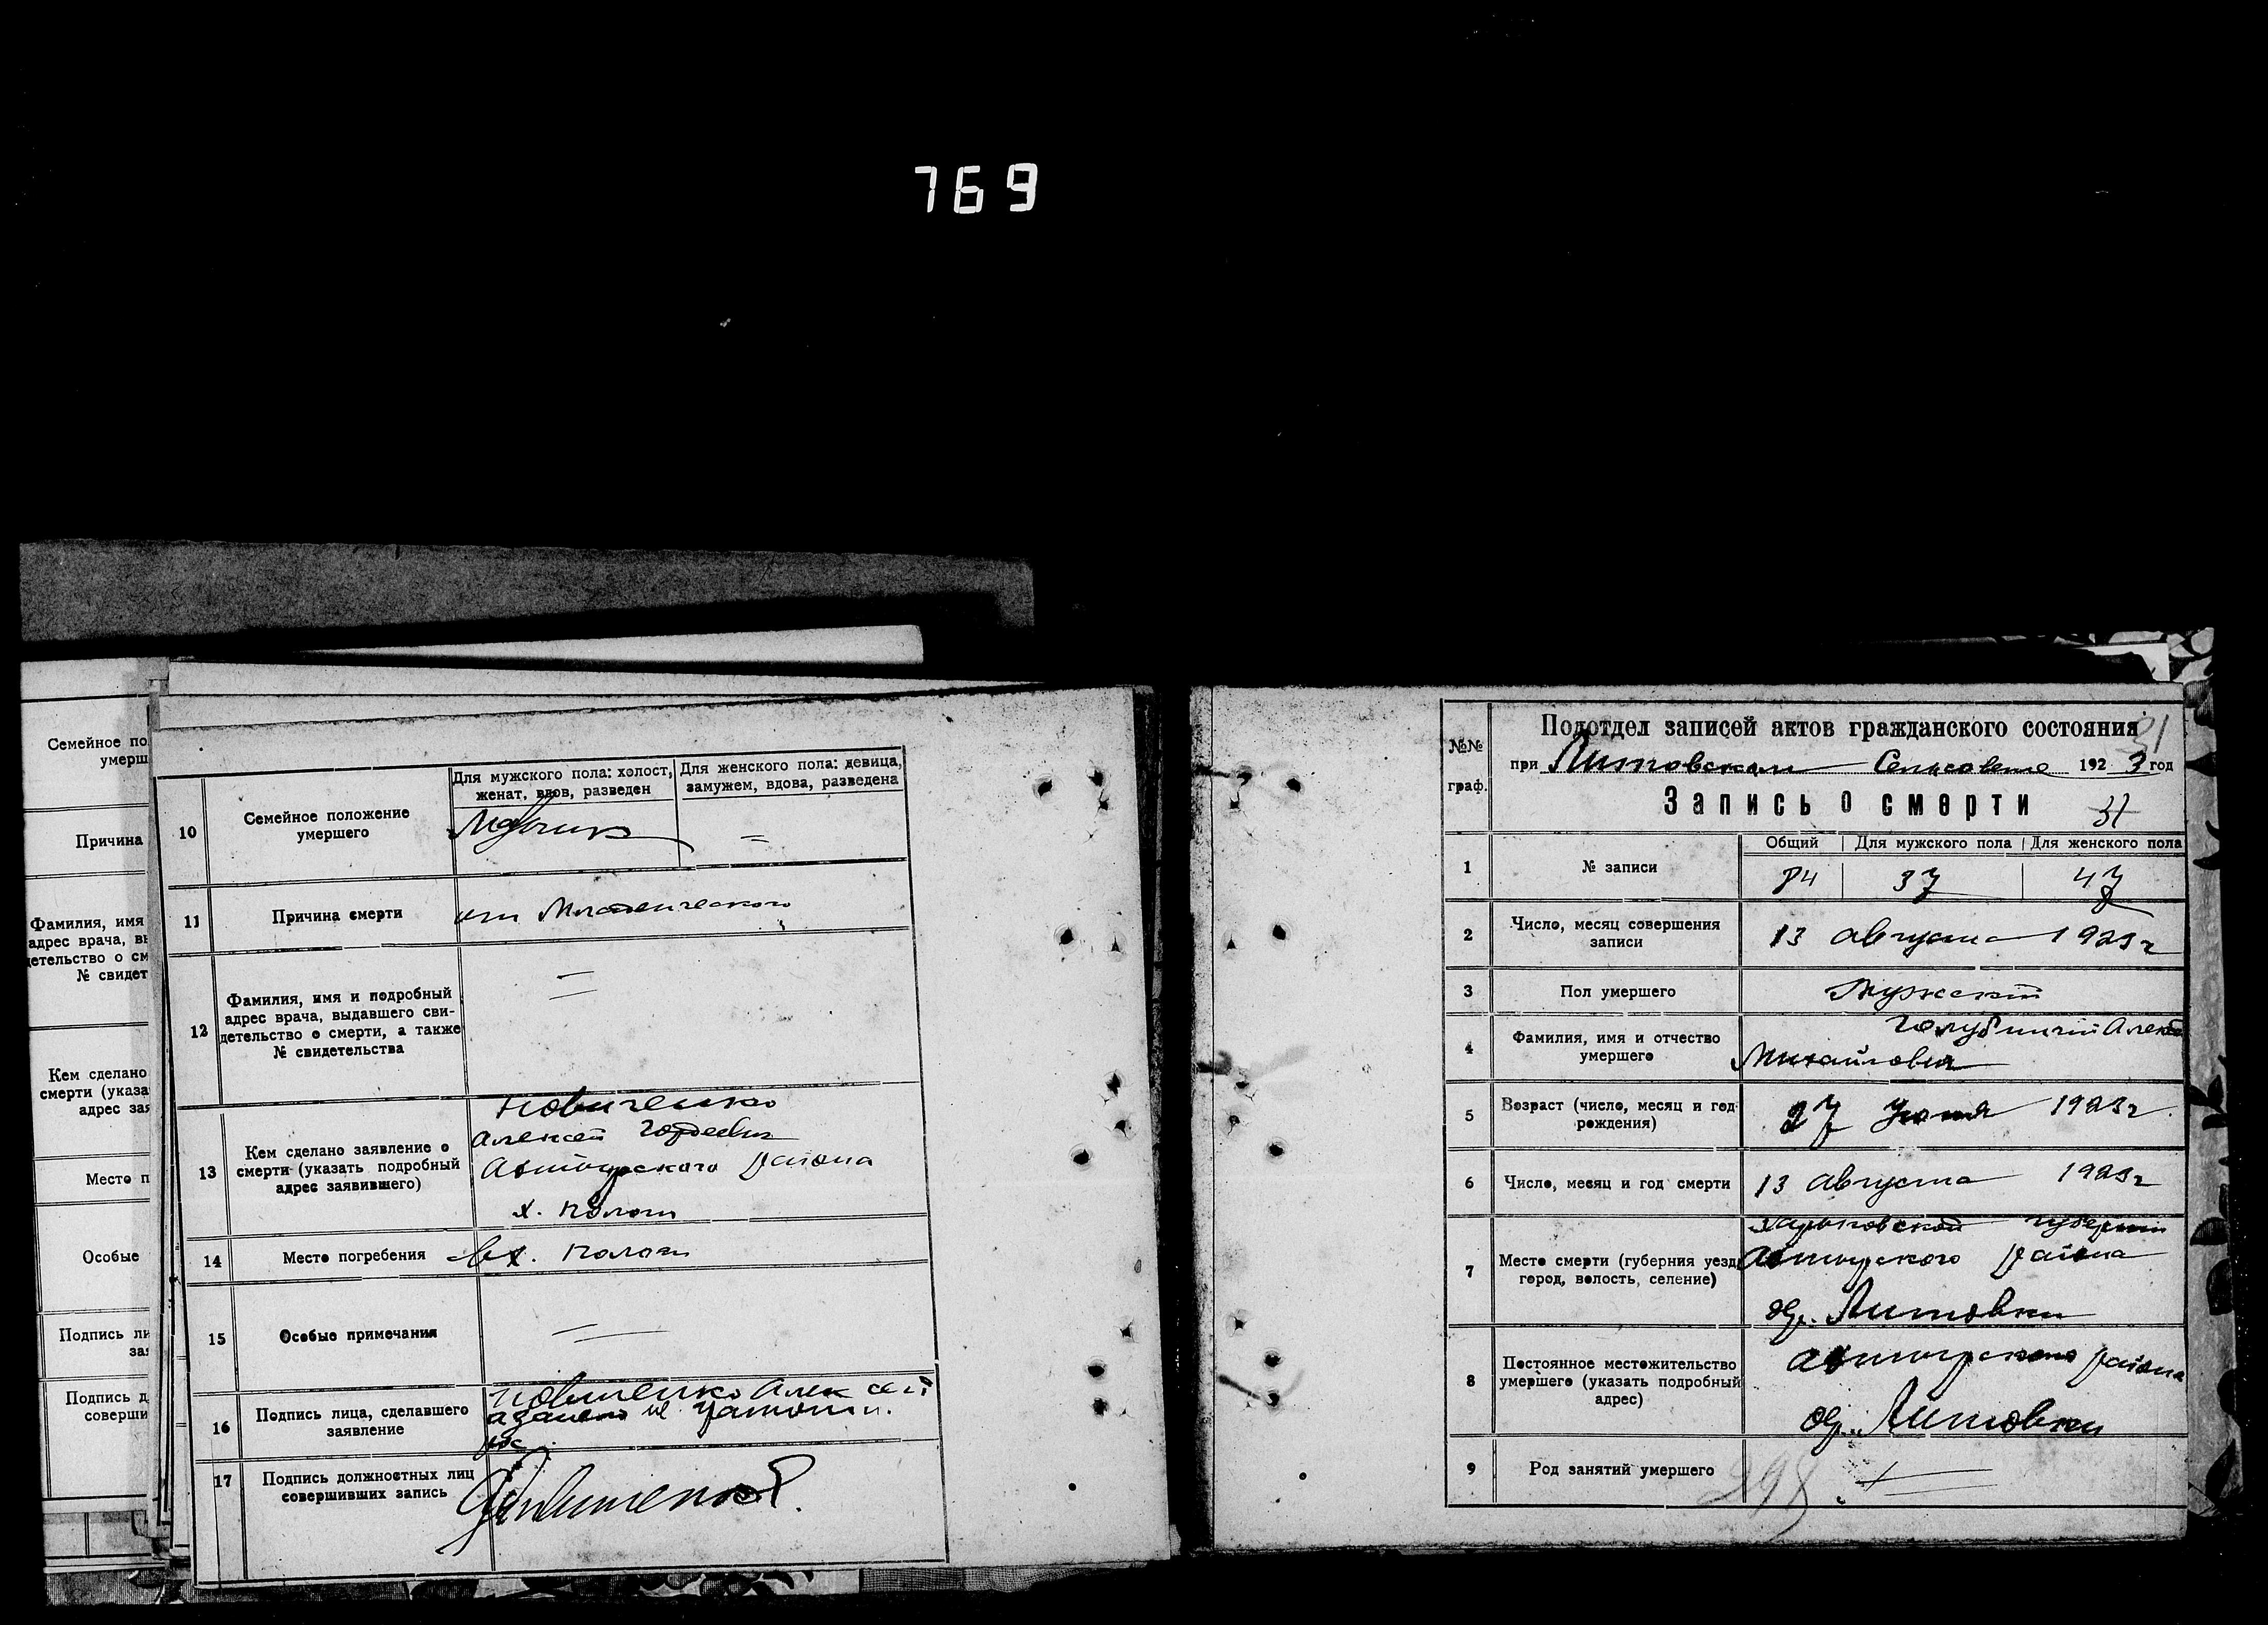 769
Семейное по
умерш
Причина
Фамилия, имя
адрес врача, вы
детельство о см
№ свидет
Кем сделано
смерти (указа
адрес зая
Место п
Особые
Подпись ли
зая
Подпись д
соверши
10
Семейное положение
умершего
Для мужского пола: холост,
женат, вдов, разведен
Для женского пола: девица,
замужем, вдова, разведена
Мальчик
=
11
Причина смерти
от Младенческого
12
Фамилия, имя и подробный
адрес врача, выдавшего сви-
детельство о смерти, а также
№ свидетельства
13
Кем сделано заявление о
смерти (указать подробный
адрес заявившего)
Новиченко
Алексей Гордеевич
района
х.
14
Место погребения
в х.
15
Особые примечания
16
Подпись лица, сделавшего
заявление
Алексей
17
Подпись должностных лиц
совершивших запись
№№
граф.
Подотдел записей актов гражданского состояния
при Литовском Сельсовете 1923 год
Запись о смерти
31
1
№ записи
Общий
Для мужского пола
Для женского пола
84
37
47
2
Число, месяц совершения
записи
13 августа 1923 г
3
Пол умершего
Мужской
4
Фамилия, имя и отчество
умершего
Голубничий Алекс
Михайлович
5
Возраст (число, месяц и год
рождения)
27 Июня 1923 г.
6
Число, месяц и год смерти
13 августа 1923 г
7
Место смерти (губерния уезд,
город, волость, селение)
Харьковской губернии
района
Литовки
8
Постоянное местожительство
умершего (указать подробный
адрес)
района
Литовки
9
Род занятий умершего
298